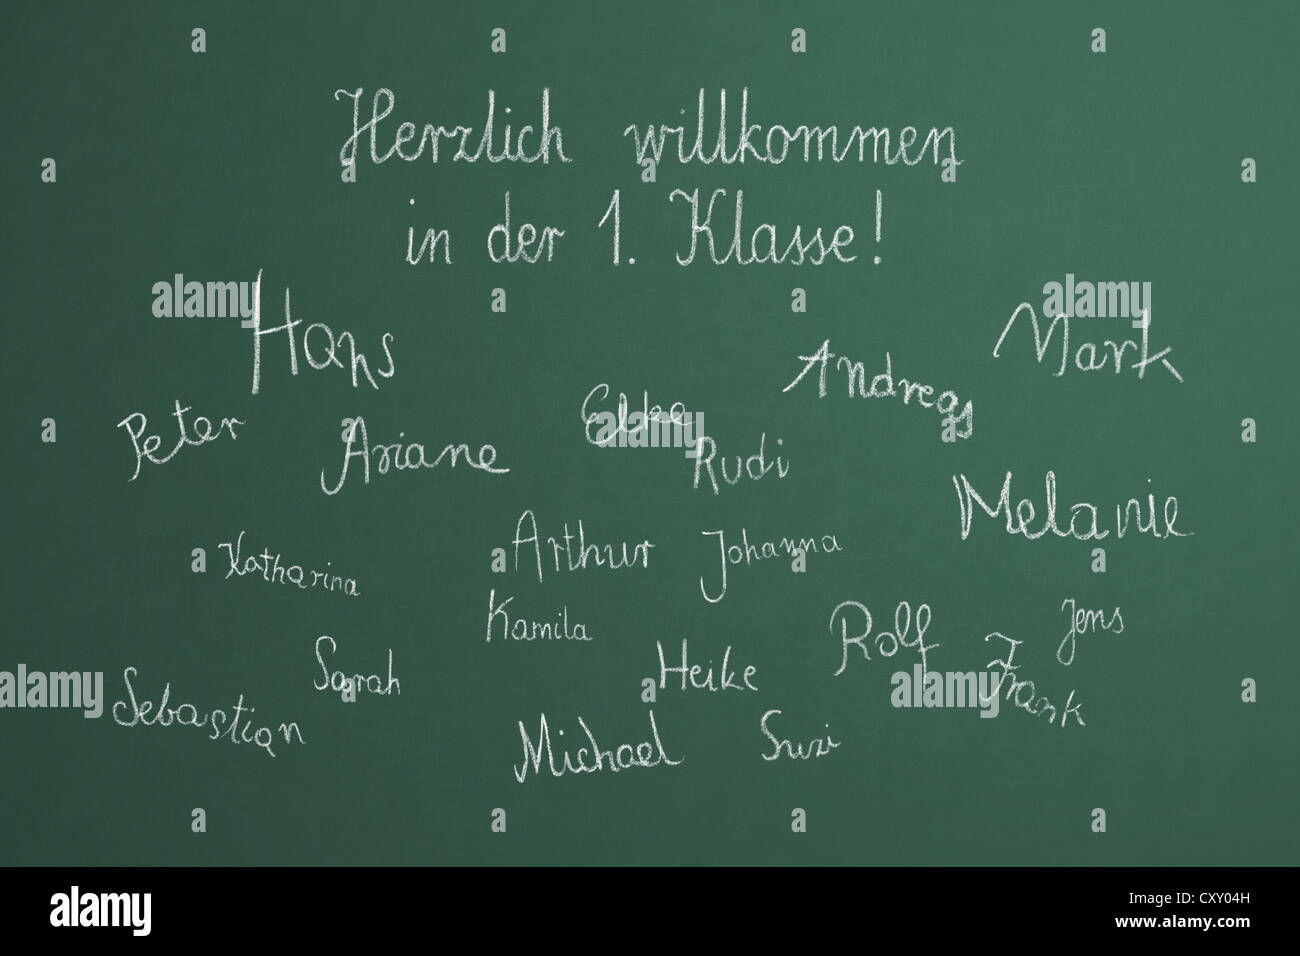 Herzlich willkommen
in der 1. Klasse!
Hans
Mark
Andreas
Peter
Ariane
Elke
Rudi
Melanie
Katharina
Arthur
Johanna
Kamila
Rolf
Jens
Sarah
Heike
Frank
Sebastian
Michael
Suzi
alamy
alamy
alamy
alamy
a
alamy
Image ID: CXY04H
www.alamy.com